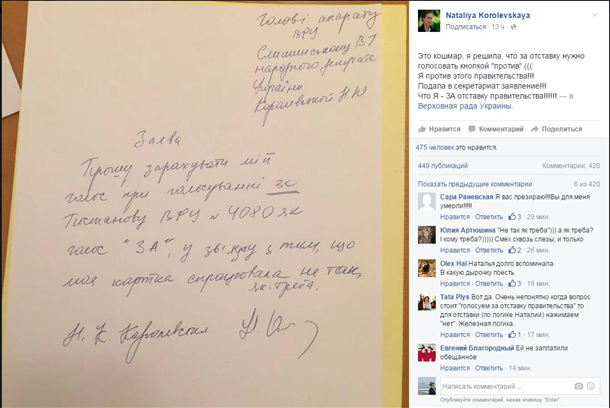 Голові апарату
ВРУ
Слишинському В.І
народного депутата
України
Королевської Н.Ю
Заява
Прошу зарахувати мій
голос при голосуванні за
Постанову ВРУ № 4080 як
голос "ЗА", у зв'язку з тим, що
моя картка спрацювала не так,
як треба.
Н. Ю. Королевська
Nataliya Korolevskaya
Подписаться · 13 ч ·
Это кошмар, я решила, что за отставку нужно
голосовать кнопкой "против" (((
Я против этого правительства!!!
Подала в секретариат заявление!!!
Что Я - ЗА отставку правительства!!!!!!! — в
Верховная рада Украины.
Нравится Комментарий Поделиться
475 человек это нравится.
449 публикаций Комментарии: 420
Показать предыдущие комментарии 6 из 420
Сара Раневская Я вас презираю!!!Вы для меня
умерли!!!!!
Нравится · Ответить · 3 · 29 мин.
Юлия Артюшина "Не так як треба"))) а як треба?
І кому треба?))))) Смех сквозь слезы, и только
Нравится · Ответить · 2 · 26 мин.
Olex Hal Наталья долго вспоминала
В какую дырочку поесть
Нравится · Ответить · 3 · 18 мин.
Tata Plys Вот да. Очень непонятно когда вопрос
стоит "голосуем за отставку правительства" то
для отставки (по логике Наталии) нажимаем
"нет". Железная логика.
Нравится · Ответить · 1 · 17 мин.
Евгений Благородный Ей не заплатили
обещанное
Нравится · Ответить · 14 мин.
Написать комментарий...
Опубликуйте комментарий, нажав клавишу "Enter".